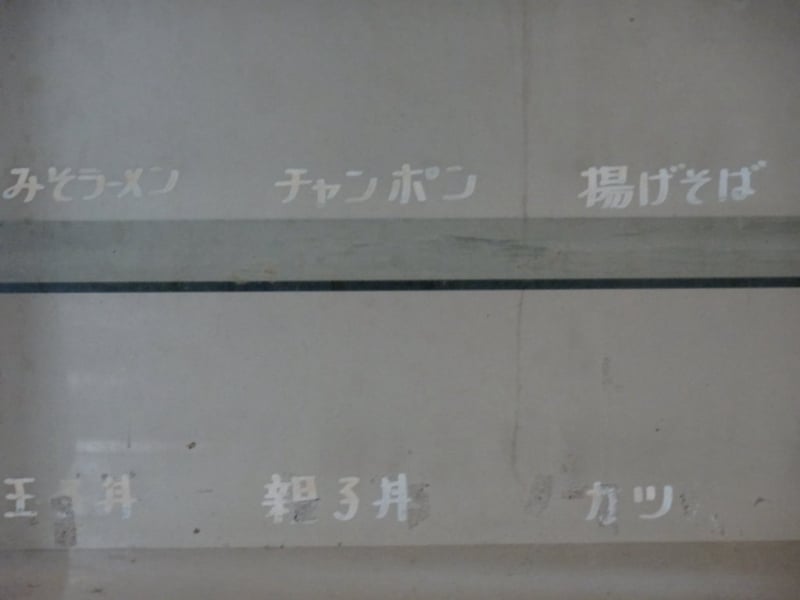 みそラーメン チャンポン 揚げそば
玉子丼 親子丼 カツ